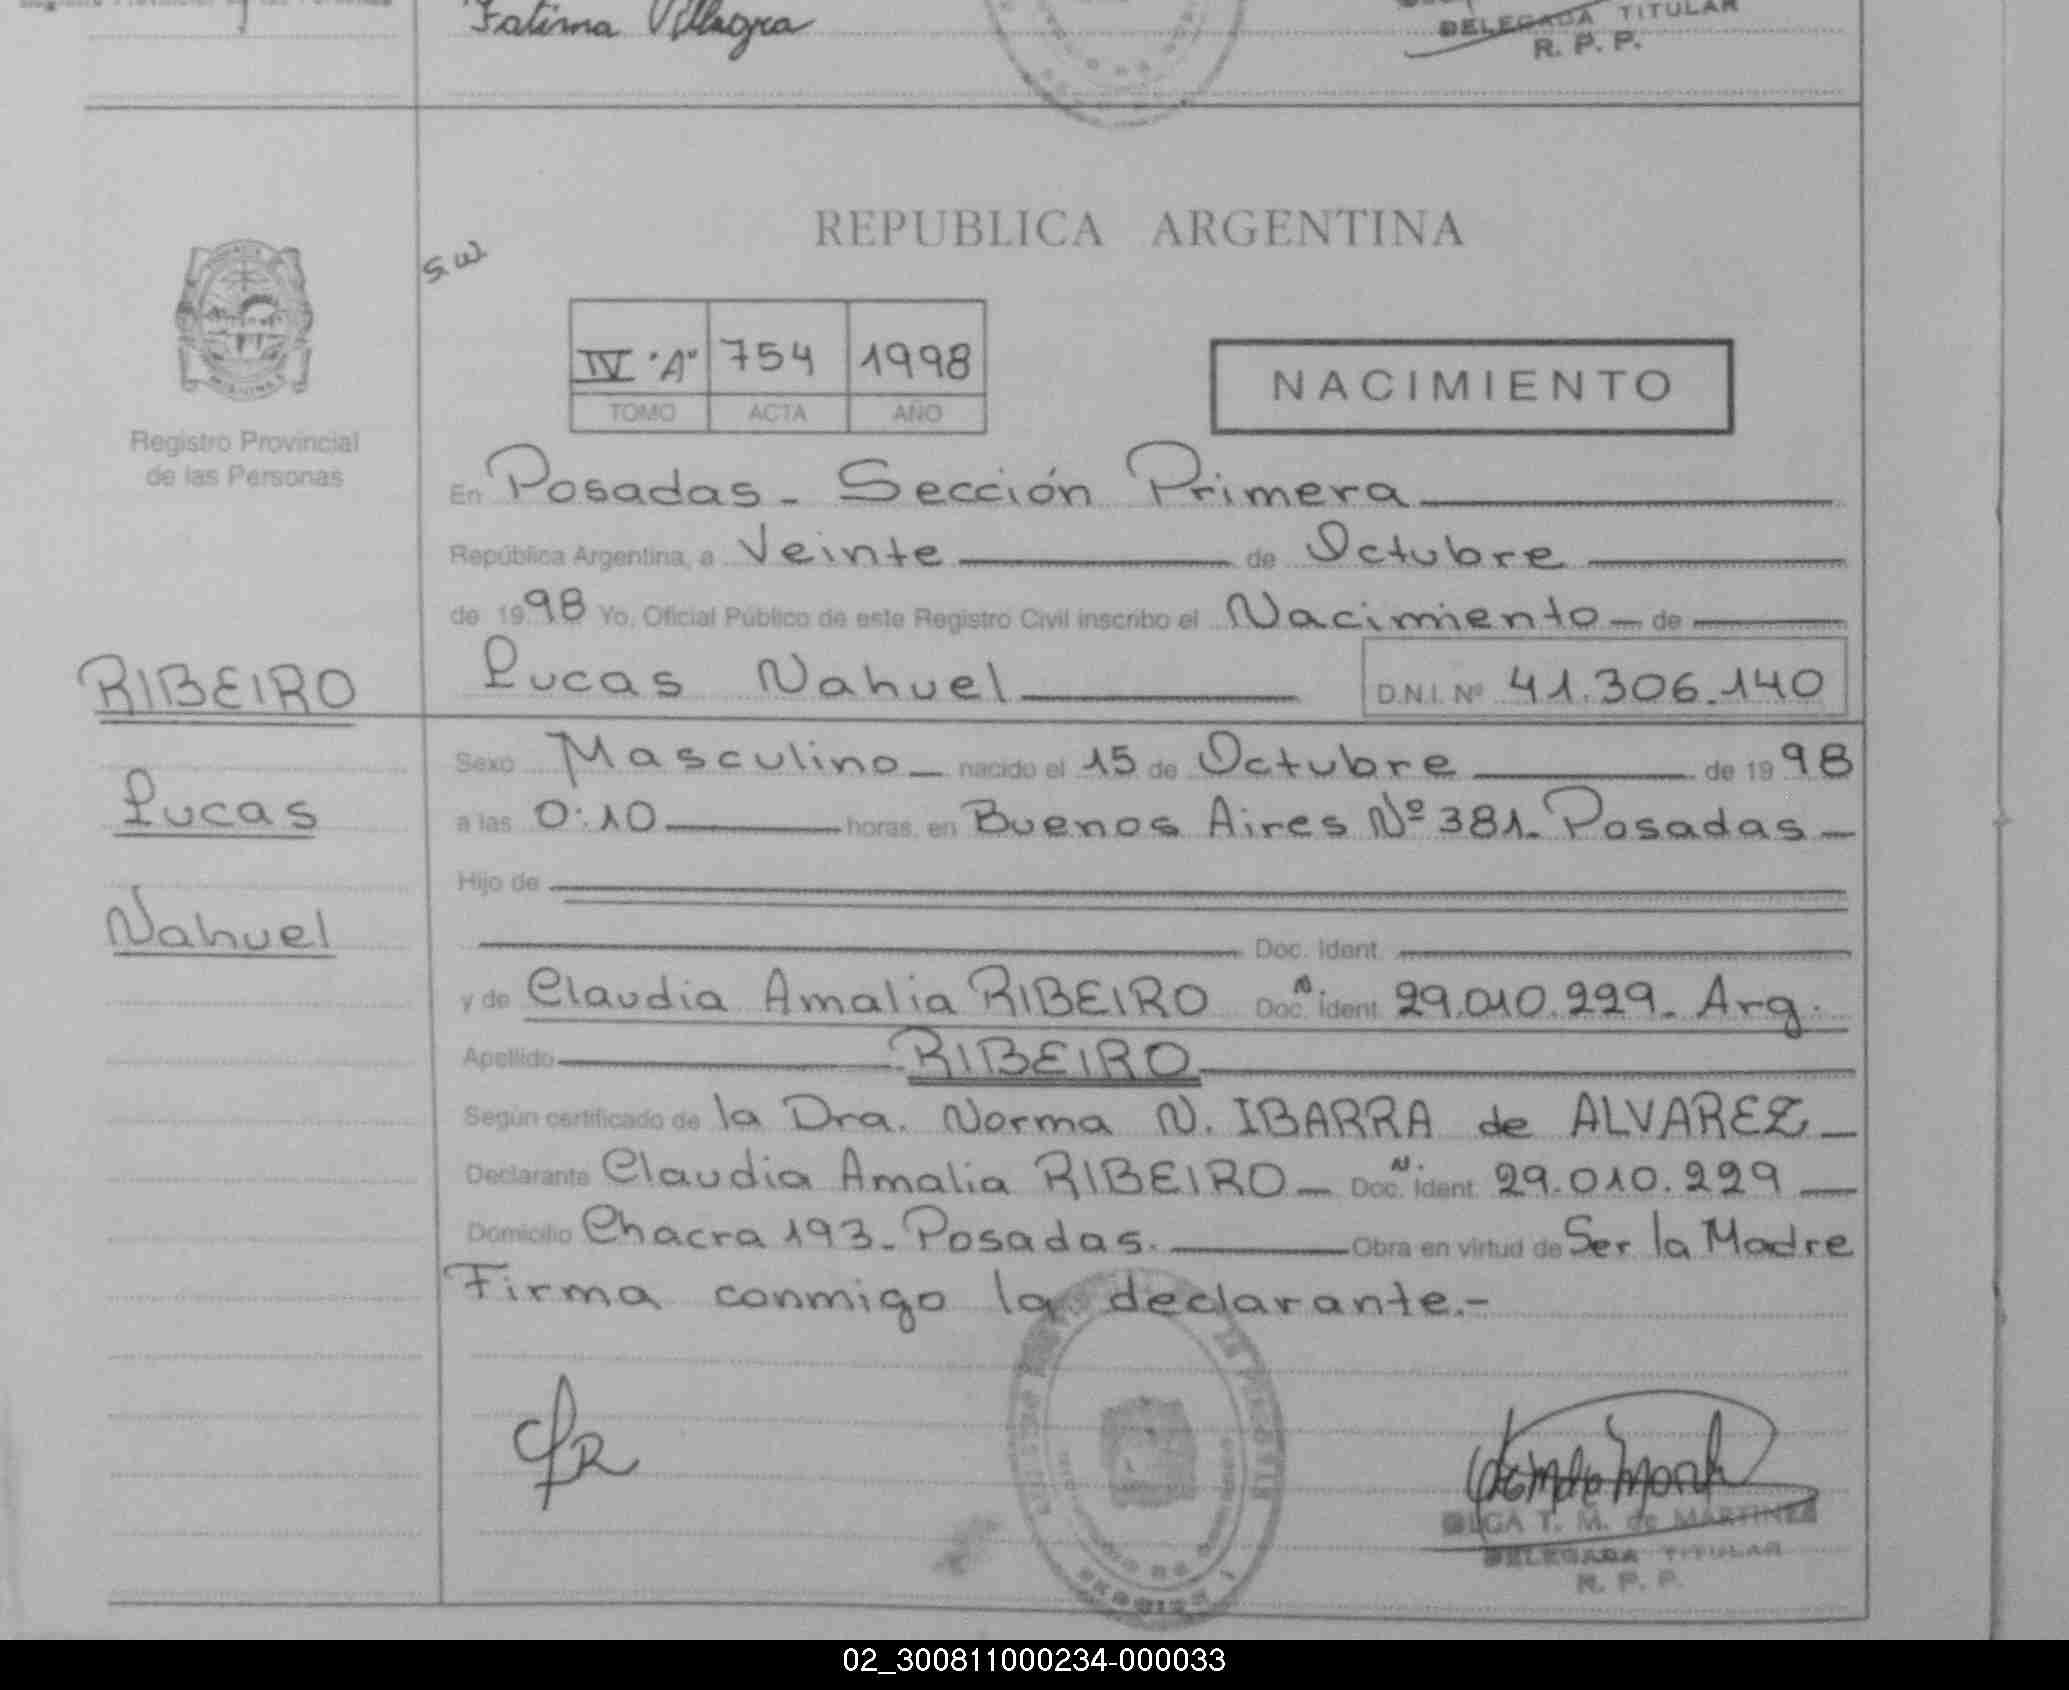 Fatima Villagra
DELEGADA TITULAR
R. P. P.
REPUBLICA ARGENTINA
s.w
IV "A" 754 1998
TOMO ACTA AÑO
NACIMIENTO
Registro Provincial
de las Personas
En Posadas - Sección Primera
República Argentina, a Veinte de Octubre
de 1998 Yo, Oficial Público de este Registro Civil inscribo el Nacimiento - de
RIBEIRO
Lucas Nahuel D.N.I. Nº 41.306.140
Sexo Masculino - nacido el 15 de Octubre de 1998
Lucas
a las 0:10 horas, en Buenos Aires Nº 381 - Posadas -
Hijo de
Nahuel
Doc. Ident.
y de Claudia Amalia RIBEIRO Doc. N. Ident. 29.010.229 - Arg.
Apellido RIBEIRO
Según certificado de la Dra. Norma N. IBARRA de ALVAREZ -
Declarante Claudia Amalia RIBEIRO - Doc. N. Ident. 29.010.229
Domicilio Chacra 193 - Posadas. Obra en virtud de Ser la Madre
Firma conmigo la declarante.-
OLGA T. M. de MARTINEZ
DELEGADA TITULAR
R. P. P.
02_300811000234-000033